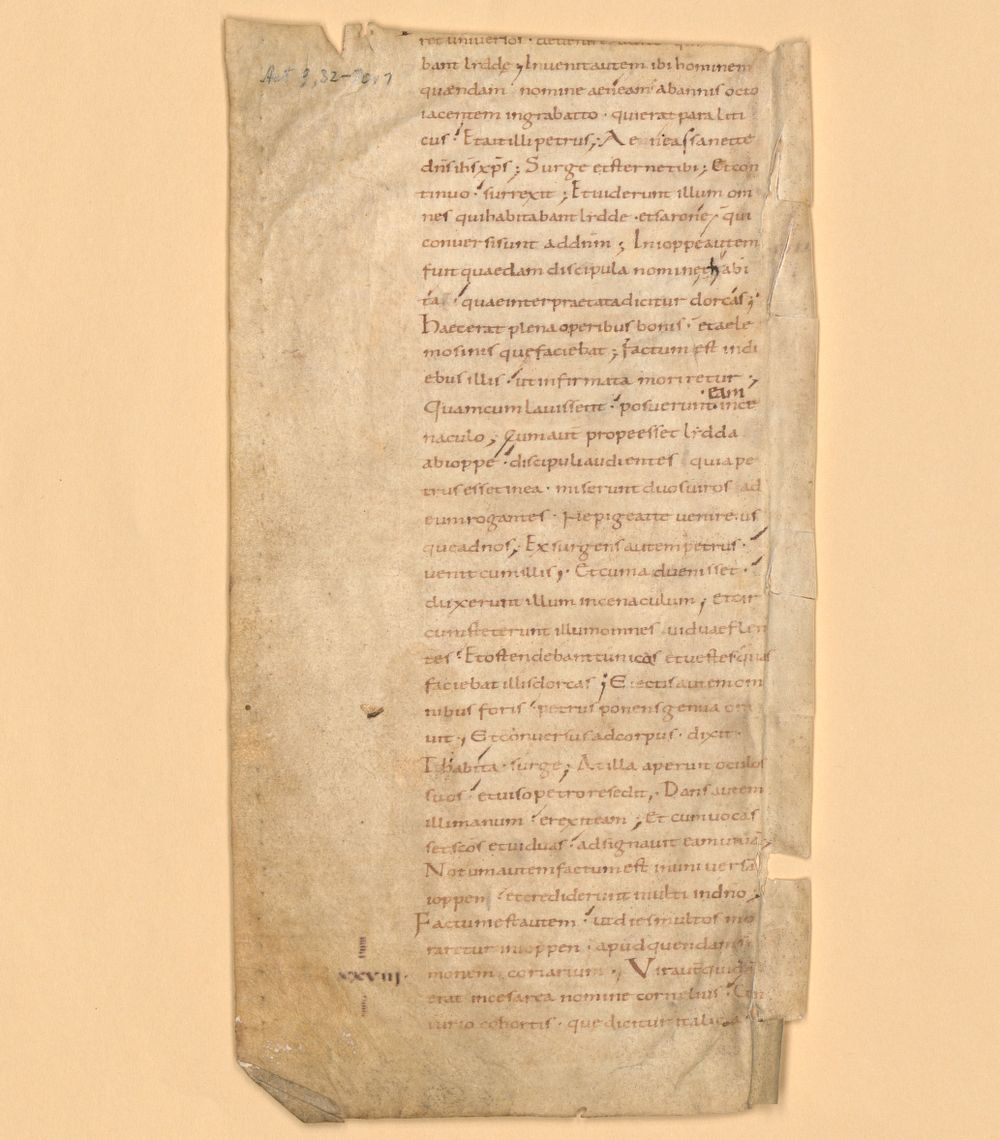 Act 9, 32-
ret universos · devenire
bant lydde ; Invenit autem ibi hominem
quendam nomine aeneam abannis octo
iacentem ingrabatto · quierat paraliti
cus · Et ait illi petrus ; Aenea sanet te
dns ihs xps ; Surge etsterne tibi ; Et con
tinuo · surrexit ; Et viderunt illum om
nes qui habitabant lydde · et sarone · qui
conversi sunt addnm ; In ioppe autem
fuit quaedam discipula nomine thabi
ta · quae interpraetata dicitur dorcas ;
Haec erat plena operibus bonis · et aele
mosinis que faciebat ; Factum est indi
ebus illis · ut infirmata moriretur ;
eam
Quam cum lavissent · posuerunt ince
naculo ; Cum aut prope esset lydda
abioppe · discipuli audientes quia pe
trus esset inea · miserunt duos viros ad
eum rogantes · Ne pigeat te venire us
que adnos ; Exsurgens autem petrus ·
venit cum illis ; Et cum advenisset ·
duxerunt illum incenaculum ; et cir
cumsteterunt illum omnes viduae flen
tes · Et ostendebant tunicas et vestes quas
faciebat illis dorcas ; Eiectis autem om
nibus foris · petrus ponens genua ora
vit ; Et conversus adcorpus · dixit ·
Thabita · surge ; At illa aperuit oculos
suos · et viso petro resedit ; Dans autem
illi manum · erexit eam ; Et cum vocas
set scos et viduas · adsignavit eam vivā ;
Notum autem factum est inuniversa
ioppen · et crediderunt multi indno ;
Factum est autem · ut dies multos mo
raretur inioppen · apud quendam si
monem coriarium ; Vir aut quidā
xxviii ·
erat incesarea nomine cornelius · Cen
turio cohortis · que dicitur italica